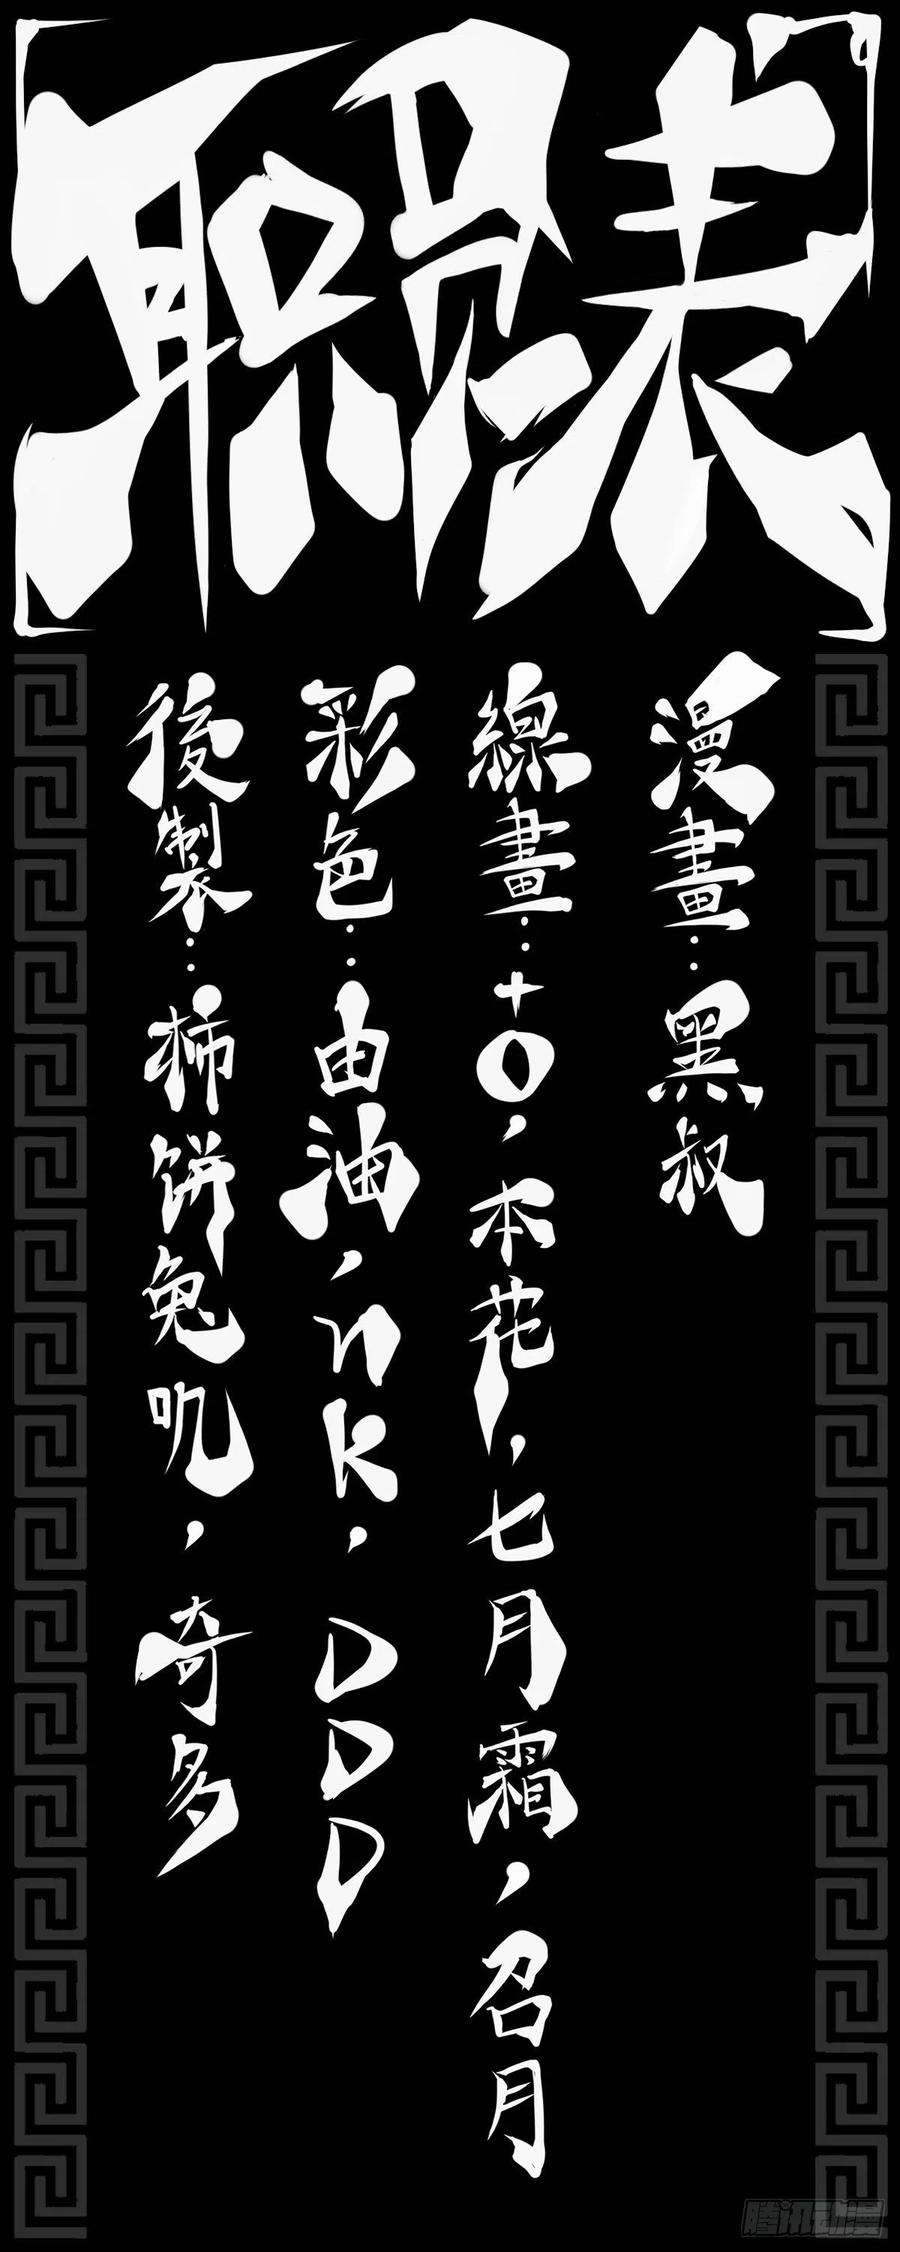 职员表
漫畫:黑叔
線畫:+0,本花,七月霜,召月
彩色:由油,nk,DDD
後製:柿饼兔叽,奇多
腾讯动漫